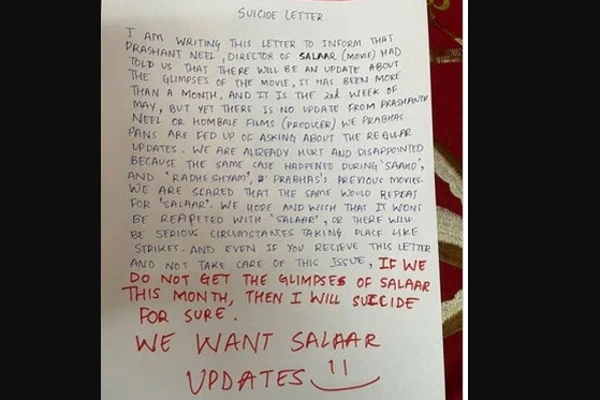 SUICIDE LETTER.
I AM WRITING THIS LETTER TO INFORM THAT
PRASHANT NEEL, DIRECTOR OF SALAAR (MOVIE) HAD
TOLD US THAT THERE WILL BE AN UPDATE ABOUT
THE GLIMPSES OF THE MOVIE, IT HAS BEEN MORE
THAN A MONTH, AND IT IS THE 2nd WEEK OF
MAY, BUT YET THERE IS NO UPDATE FROM PRASHANTH
NEEL OR HOMBALE FILMS (PRODUCER) WE PRABHAS
FANS ARE FED UP OF ASKING ABOUT THE REGULAR
UPDATES. WE ARE ALREADY HURT AND DISAPPOINTED
BECAUSE THE SAME CASE HAPPENED DURING 'SAAHO',
AND 'RADHESHYAM', PRABHAS'S PREVIOUS MOVIES.
WE ARE SCARED THAT THE SAME WOULD REPEAT
FOR 'SALAAR'. WE HOPE AND WISH THAT IT WONT
BE REAPETED WITH 'SALAAR', OR THERE WILL
BE SERIOUS CIRCUMSTANCES TAKING PLACE LIKE
STRIKES. AND EVEN IF YOU RECIEVE THIS LETTER
AND NOT TAKE CARE OF THIS ISSUE, IF WE
DO NOT GET THE GLIMPSES OF SALAAR
THIS MONTH, THEN I WILL SUICIDE
FOR SURE.
WE WANT SALAAR
UPDATES !!